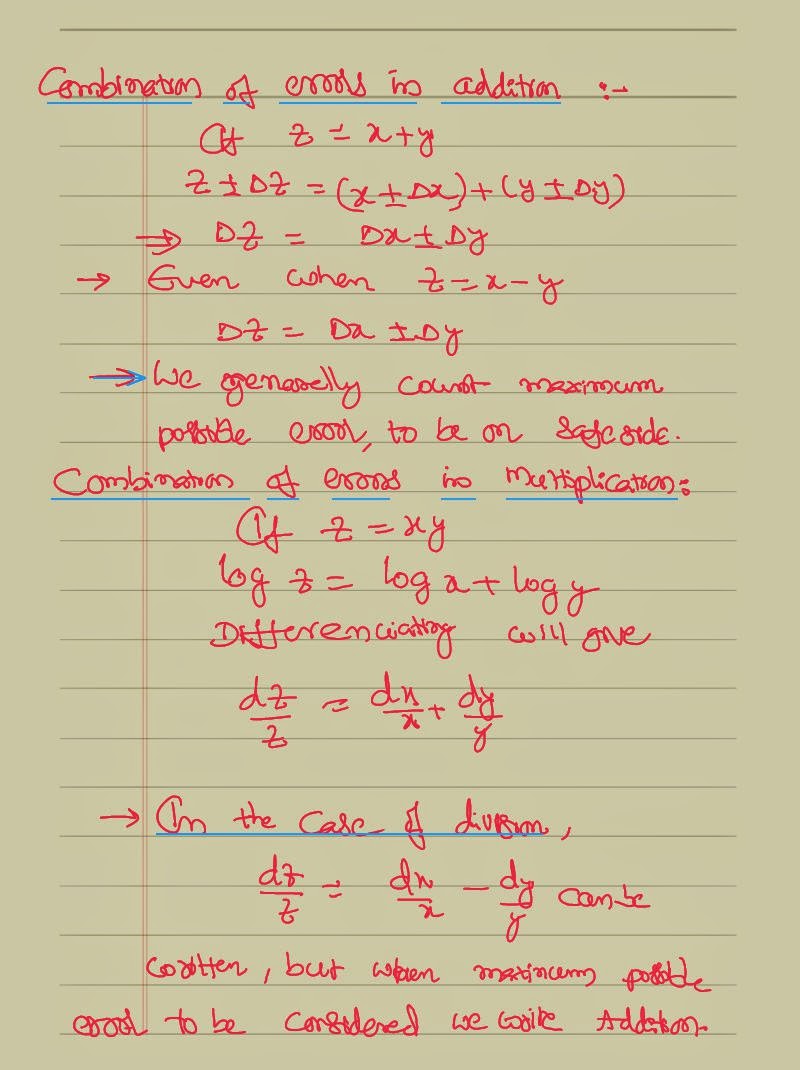 Combination of errors in addition :-
If z = x + y
z ± Dz = (x ± Dx) + (y ± Dy)
⇒ Dz = Dx ± Dy
→ Even when z = x - y
Dz = Dx ± Dy
→ We generally count maximum
possible error, to be on safe side.
Combination of errors in Multiplication:
If z = xy
log z = log x + log y
Differenciating will give
dz/z = dx/x + dy/y
→ In the case of division,
dz/z = dx/x - dy/y can be
written, but when maximum possible
error to be considered we write Addition.